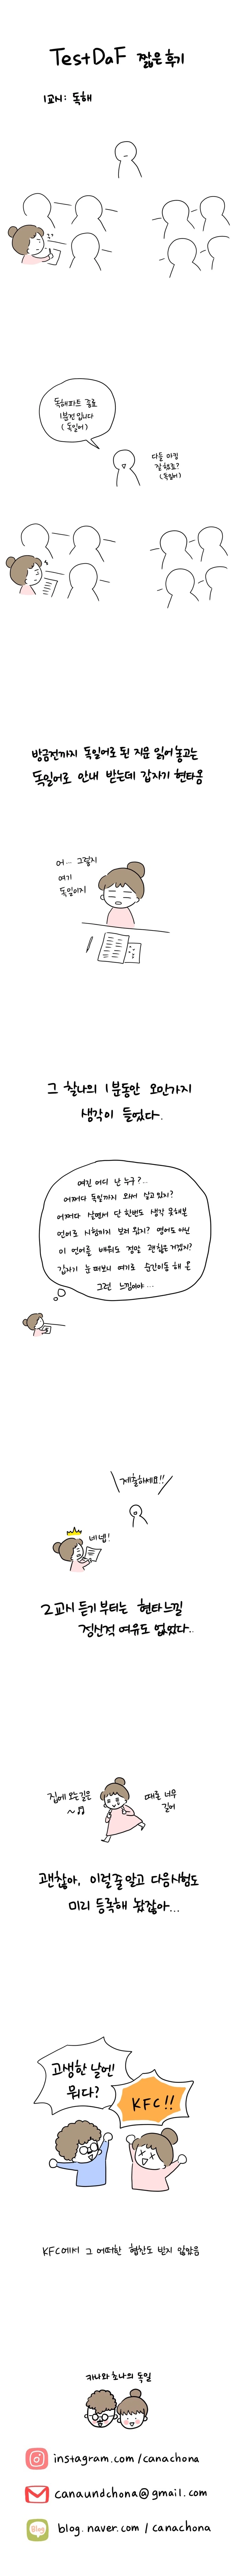 TestDaF 짧은후기
1교시: 독해
독해파트 종료
1분전입니다
(독일어)
다들 마킹
잘했죠?
(독일어)
방금전까지 독일어로 된 지문 읽어놓고는
독일어로 안내 받는데 갑자기 현타옴
어... 그렇지
여기
독일이지
그 찰나의 1분동안 오만가지
생각이 들었다.
여긴 어디 난 누구?...
어쩌다 독일까지 와서 살고있지?
어쩌다 살면서 단 한번도 생각 못해본
언어로 시험까지 보러 왔지? 영어도 아닌
이 언어를 배워도 정말 괜찮은거겠지?
갑자기 눈떠보니 여기로 순간이동 해 온
그런 느낌이야...
제출하세요!!
네넵!
2교시 듣기부터는 현타느낄
정신적 여유도 없었다..
집에 오는길은
~♫
때론 너무
길어
괜찮아, 이럴줄알고 다음시험도
미리 등록해 놨잖아...
고생한 날엔
뭐다?
KFC!!
KFC에서 그 어떠한 협찬도 받지 않았음
카나와 초나의 독일
instagram.com/canachona
canaundchona@gmail.com
Blog
blog.naver.com/canachona